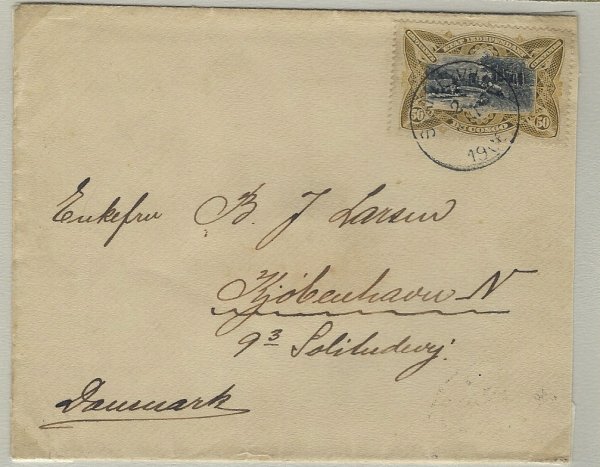 ETAT INDEPENDANT
DU CONGO
50 50
19
Enkefru B. J Larsen
Kjöbenhavn N
9³ Solitudevej.
Danmark